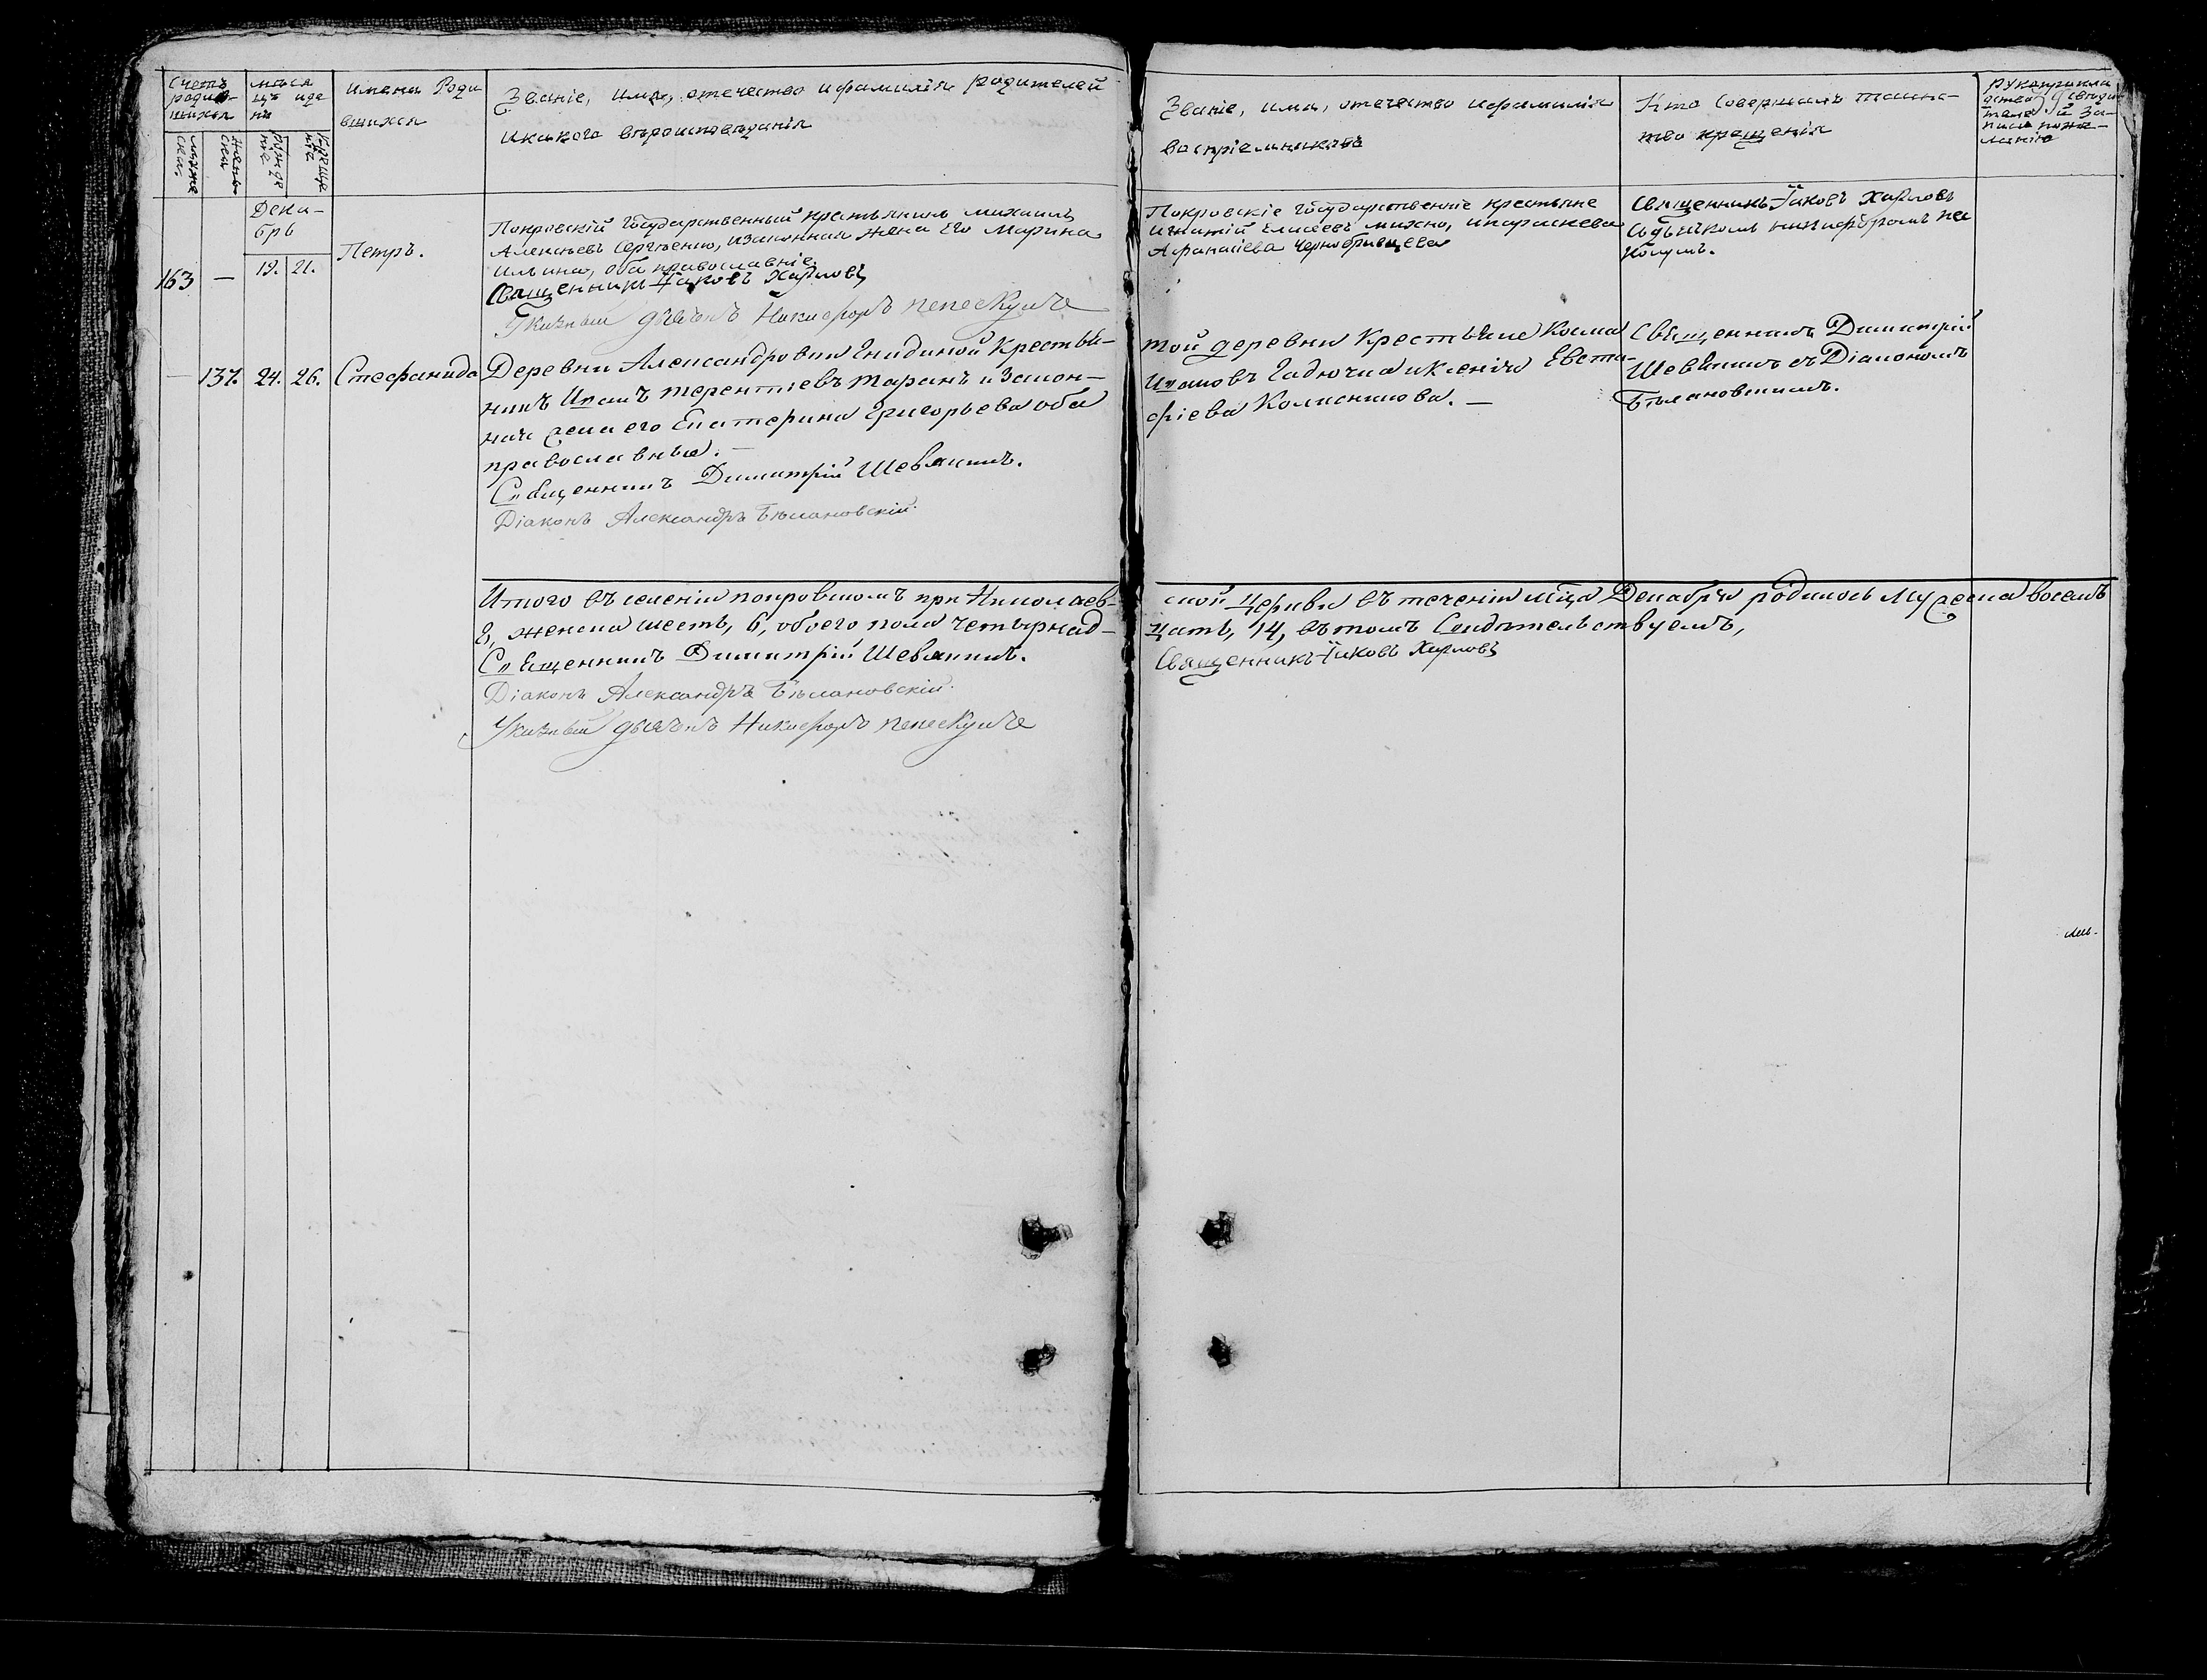 Счетъ родив-
шихся
мѣся
цъ и де
нь
Имена Роди
вшихся
Званіе, имя, отечество и фамилія родителей
и какого вѣроисповѣданія
Званіе, имя, отечество и фамилія
воспріемниковъ
Кто совершалъ таинс-
тво крещенія
рукоприкла
дство свидѣ
телей за-
писи по же-
ланію
муже
ска.
жень
ска
рожде
ніе
креще
ніе
Дека-
брь
163 — 19. 21. Петръ.
Покровскій государственный крестьянинъ михаилъ
Алексѣевъ Сергѣенко, и законная жена Его Марина
Ильина, оба православніе.
Священникъ Іаковъ Харловъ
Указный дьячекъ Никифоръ
Покровскіе государственніе крестьяне
игнатій Елисеевъ михно, и параскева
Афанасіева Чернобривцева
Священникъ Іаковъ Харловъ
содьячкомъ никифоромъ пес
кулъ.
— 137. 24. 26. Стефанида
Деревни Александровки Енидиной Крестья-
нинъ Иванъ терентіевъ таранъ и закон-
ная жена его Екатерина Григорьева оба
православные. —
Священникъ Димитрій Шевякинъ.
Діаконъ Александръ Бѣлановскій.
той деревни Крестьяне Косма
Ивановъ Гадючка и ксенія Евста-
фіева Колисникова. —
Священникъ Димитрій
Шевякинъ съ Діакономъ
Бѣлановскимъ.
Итого въ селеніи покровскомъ при Николаев-
ской Церкви въ теченіи мѣсяца Декабря родилось мужеска восемъ
8, женска шесть, 6, обоего пола четырнад-
цать, 14, въ томъ Свидѣтельствуемъ,
Священникъ Димитрій Шевякинъ.
Священникъ Іаковъ Харловъ
Діаконъ Александръ Бѣлановскій.
Указный дьячекъ Никифоръ